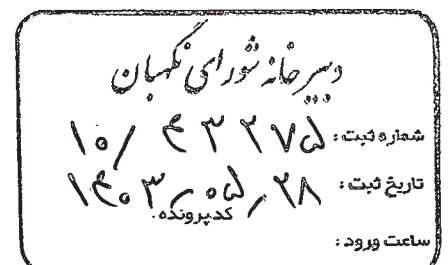 دبیرخانه شورای نگهبان
شماره ثبت: ۱۰/ ۴۳۲۷۵
تاریخ ثبت: ۱۴۰۳,۰۵,۲۸
کد پرونده:
ساعت ورود: